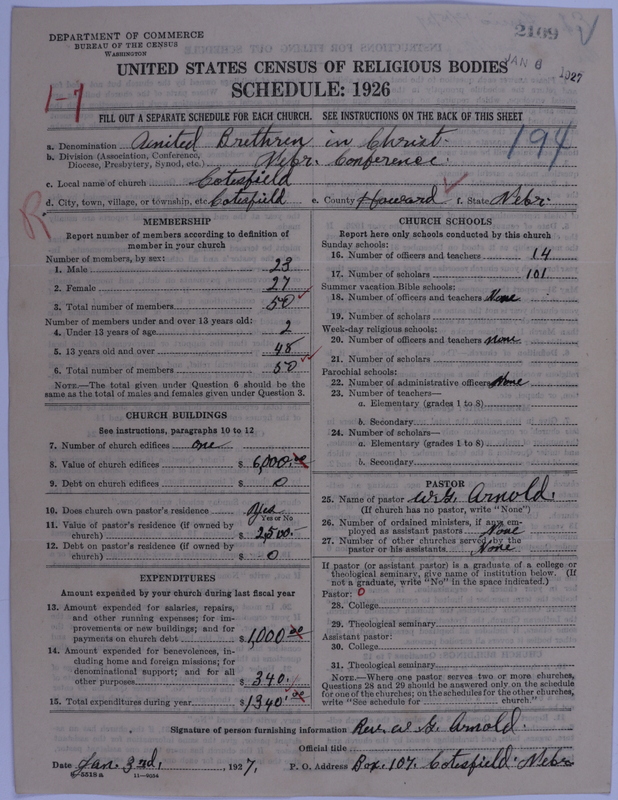 DEPARTMENT OF COMMERCE
BUREAU OF THE CENSUS
WASHINGTON
2109
JAN 6 1927
UNITED STATES CENSUS OF RELIGIOUS BODIES
SCHEDULE: 1926
1-7
FILL OUT A SEPARATE SCHEDULE FOR EACH CHURCH. SEE INSTRUCTIONS ON THE BACK OF THIS SHEET
194
a. Denomination United Brethren in Christ.
b. Division (Association, Conference, Diocese, Presbytery, Synod, etc.) Nebr. Conference.
c. Local name of church Cotesfield
d. City, town, village, or township, etc. Cotesfield e. County Howard f. State Nebr.
R
MEMBERSHIP
Report number of members according to definition of
member in your church
Number of members, by sex:
1. Male 23
2. Female 27
3. Total number of members 50
Number of members under and over 13 years old:
4. Under 13 years of age 2
5. 13 years old and over 48
6. Total number of members 50
NOTE.—The total given under Question 6 should be
same as the total of males and females given under Question 3.
CHURCH BUILDINGS
See instructions, paragraphs 10 to 12
7. Number of church edifices one
8. Value of church edifices $ 6,000.00
9. Debt on church edifices $ 0
10. Does church own pastor's residence Yes
Yes or No
11. Value of pastor's residence (if owned by
church) $ 2,500.-
12. Debt on pastor's residence (if owned by
church) $ 0
EXPENDITURES
Amount expended by your church during last fiscal year
13. Amount expended for salaries, repairs,
and other running expenses; for im-
provements or new buildings; and for
payments on church debt $ 1,000.00
14. Amount expended for benevolences, in-
cluding home and foreign missions; for
denominational support; and for all
other purposes $ 340.
15. Total expenditures during year $ 1340.00
CHURCH SCHOOLS
Report here only schools conducted by this church
Sunday schools:
16. Number of officers and teachers 14
17. Number of scholars 101
Summer vacation Bible schools:
18. Number of officers and teachers None
19. Number of scholars
Week-day religious schools:
20. Number of officers and teachers none
21. Number of scholars
Parochial schools:
22. Number of administrative officers None
23. Number of teachers—
a. Elementary (grades 1 to 8)
b. Secondary
24. Number of scholars—
a. Elementary (grades 1 to 8)
b. Secondary
PASTOR
25. Name of pastor W. G. Arnold.
(If church has no pastor, write "None")
26. Number of ordained ministers, if any em-
ployed as assistant pastors None
27. Number of other churches served by the
pastor or his assistants None
If pastor (or assistant pastor) is a graduate of a college or
theological seminary, give name of institution below. (If
not a graduate, write "No" in the space indicated.)
Pastor: 0
28. College
29. Theological seminary
Assistant pastor:
30. College
31. Theological seminary
NOTE.—Where one pastor serves two or more churches,
Questions 28 and 29 should be answered only on the schedule
for one of the churches; on the schedules for the other churches,
write "See schedule for church."
Signature of person furnishing information Rev. W. G. Arnold.
Official title
Date Jan. 3rd, 1927, P. O. Address Box 107, Cotesfield Nebr.
8-5518a 11-9034